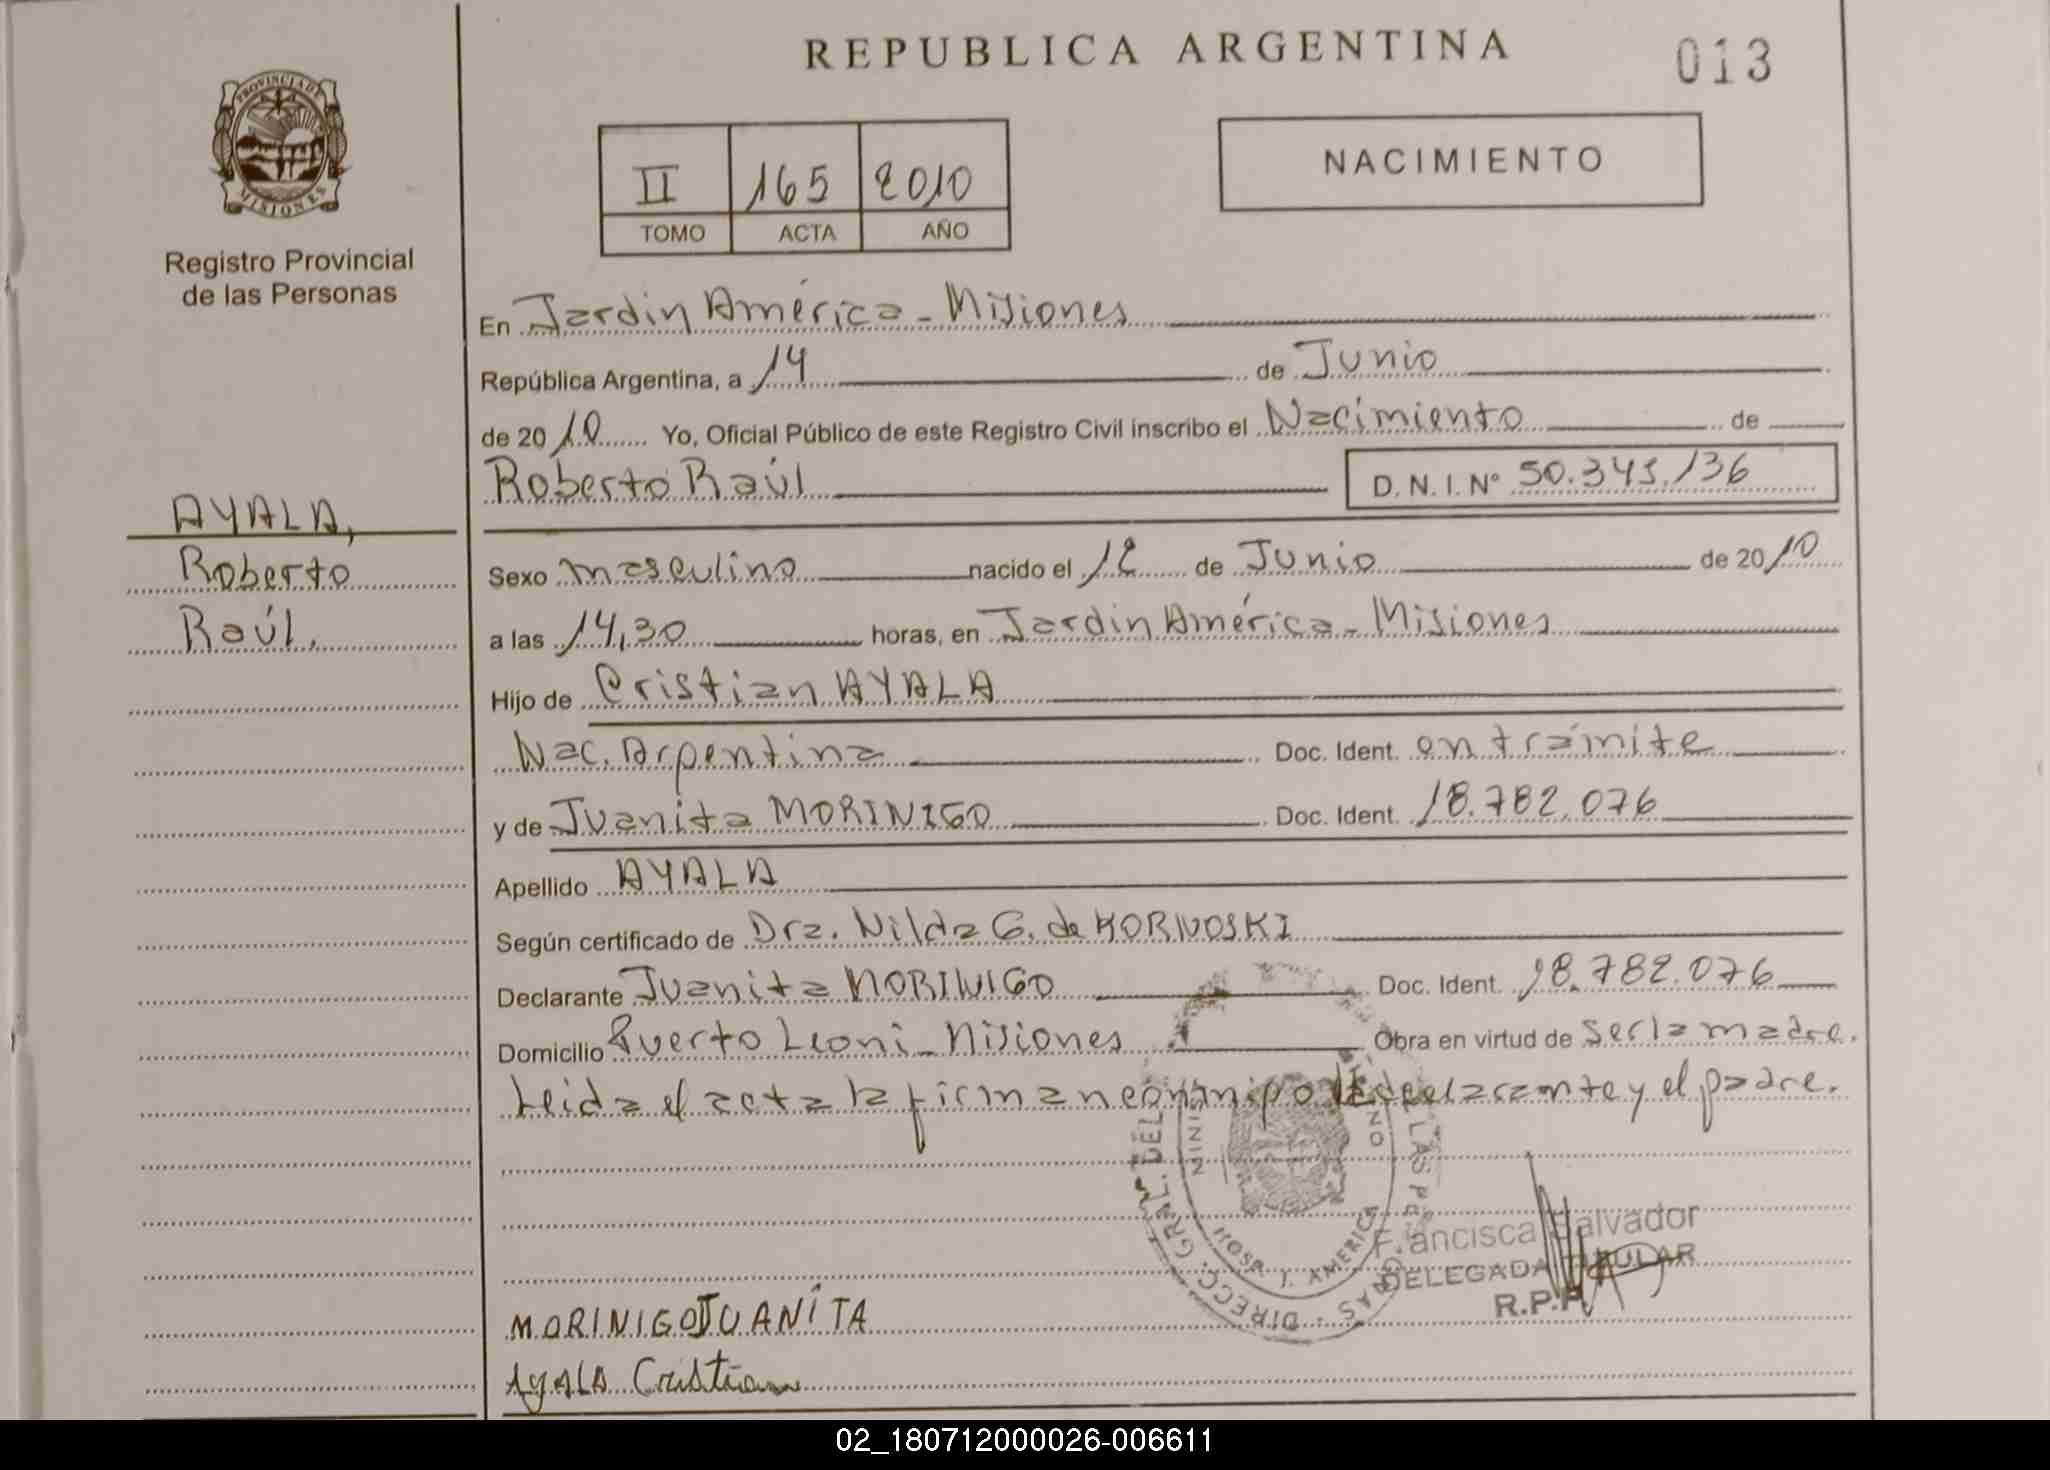 REPUBLICA ARGENTINA
013
PROVINCIA DE
MISIONES
Registro Provincial
de las Personas
II 165 2010
TOMO ACTA AÑO
NACIMIENTO
En Jardin América - Misiones
República Argentina, a 14 de Junio
de 2010 Yo, Oficial Público de este Registro Civil inscribo el Nacimiento de
Roberto Raúl D.N.I. Nº 50.343.136
AYALA,
Roberto
Raúl.
Sexo masculino nacido el 12 de Junio de 2010
a las 14,30 horas, en Jardin América - Misiones
Hijo de Cristian AYALA
Nac. Argentina Doc. Ident. en trámite
y de Juanita MORINIGO Doc. Ident. 18.782.076
Apellido AYALA
Según certificado de Dra. Nilda G. de KORNOSKI
Declarante Juanita MORINIGO Doc. Ident. 18.782.076
Domicilio Puerto Leoni - Misiones Obra en virtud de ser la madre.
Leida el acta la firman conmigo la declarante y el padre.
DIRECC. GRAL. DEL
HOSP. J. AMERICA
Francisca Salvador
DELEGADA TITULAR
R.P.P.
MORINIGO JUANITA
AyALA Cristian
02_180712000026-006611